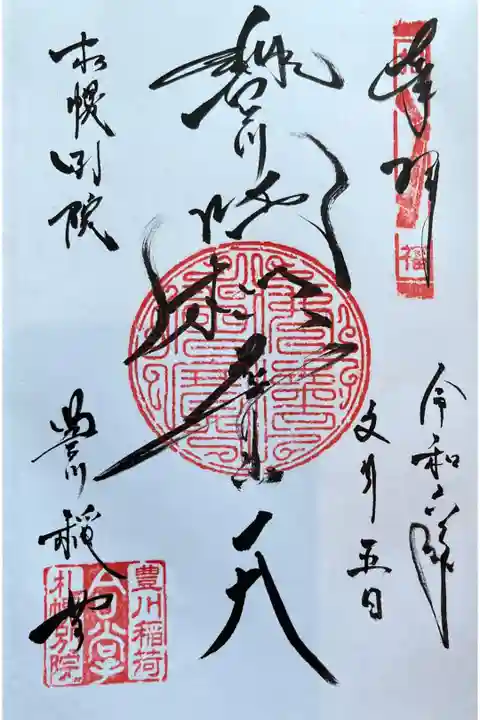 奉拝
福
令和六年
文月五日
豊川吒枳尼眞天
札幌別院
豊川稲荷
豊川稲荷
札幌別院